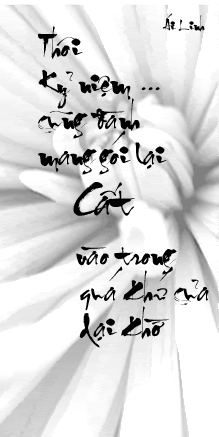 Ái Linh
Thôi
Kỷ niệm ...
cũng đành
mang gói lại
Cất
vào trong
quá khứ của
dại khờ